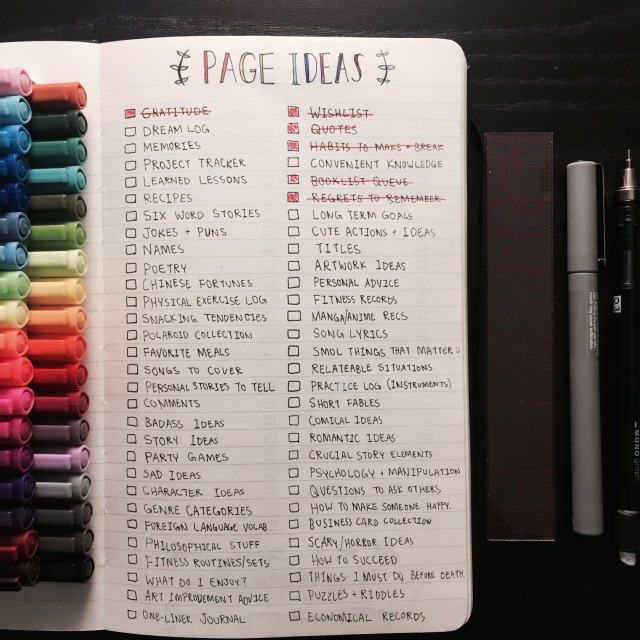 PAGE IDEAS
GRATITUDE
DREAM LOG
MEMORIES
PROJECT TRACKER
LEARNED LESSONS
RECIPES
SIX WORD STORIES
JOKES + PUNS
NAMES
POETRY
CHINESE FORTUNES
PHYSICAL EXERCISE LOG
SNACKING TENDENCIES
POLAROID COLLECTION
FAVORITE MEALS
SONGS TO COVER
PERSONAL STORIES TO TELL
COMMENTS
BADASS IDEAS
STORY IDEAS
PARTY GAMES
SAD IDEAS
CHARACTER IDEAS
GENRE CATEGORIES
FOREIGN LANGUAGE VOCAB
PHILOSOPHICAL STUFF
FITNESS ROUTINES/SETS
WHAT DO I ENJOY?
ART IMPROVEMENT ADVICE
ONE-LINER JOURNAL
WISHLIST
QUOTES
HABITS TO MAKE + BREAK
CONVENIENT KNOWLEDGE
BOOKLIST QUEUE
REGRETS TO REMEMBER
LONG TERM GOALS
CUTE ACTIONS + IDEAS
TITLES
ARTWORK IDEAS
PERSONAL ADVICE
FITNESS RECORDS
MANGA/ANIME RECS
SONG LYRICS
SMOL THINGS THAT MATTER :)
RELATEABLE SITUATIONS
PRACTICE LOG (INSTRUMENTS)
SHORT FABLES
COMICAL IDEAS
ROMANTIC IDEAS
CRUCIAL STORY ELEMENTS
PSYCHOLOGY + MANIPULATION
QUESTIONS TO ASK OTHERS
HOW TO MAKE SOMEONE HAPPY.
BUSINESS CARD COLLECTION
SCARY/HORROR IDEAS
HOW TO SUCCEED
THINGS I MUST DO BEFORE DEATH.
PUZZLES + RIDDLES
ECONOMICAL RECORDS
0.3
MONO